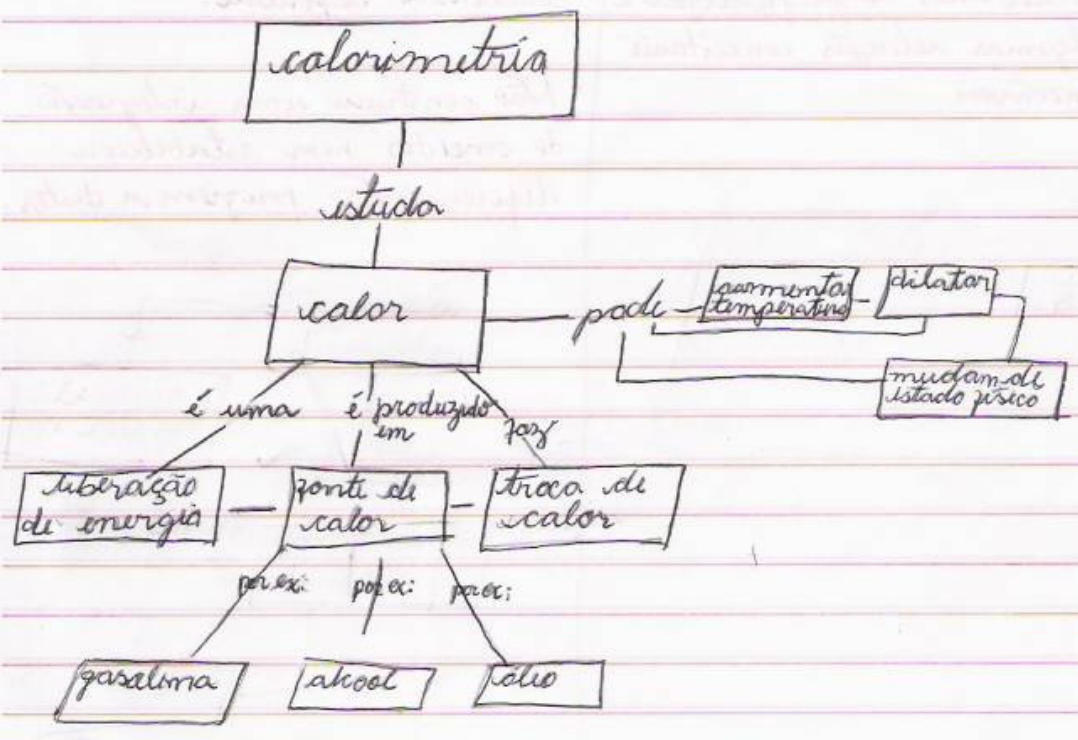 calorimetria
estuda
calor
pode
aumentar
temperatura
dilatar
mudam de
estado físico
é uma
é produzido
em
faz
liberação
de energia
fonte de
calor
troca de
calor
por ex:
por ex:
por ex:
gasolina
alcool
óleo